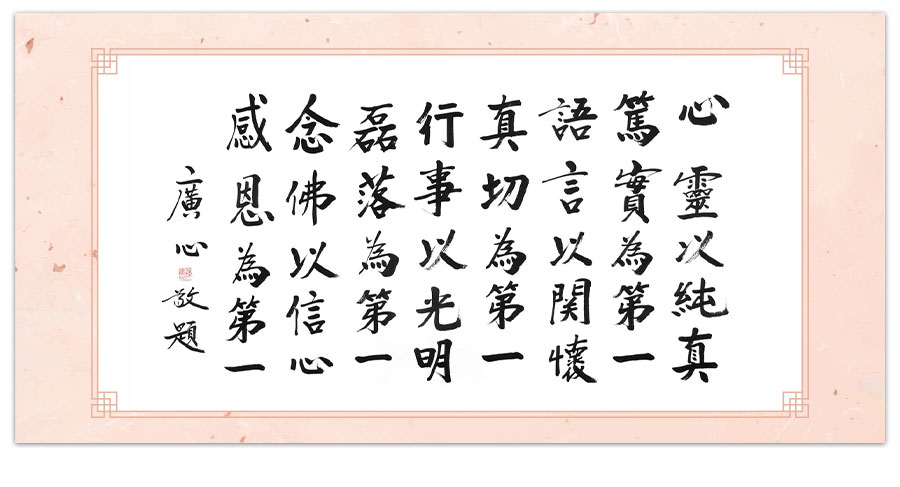 心靈以純真
篤實為第一
語言以関懷
真切為第一
行事以光明
磊落為第一
念佛以信心
感恩為第一
廣心敬題